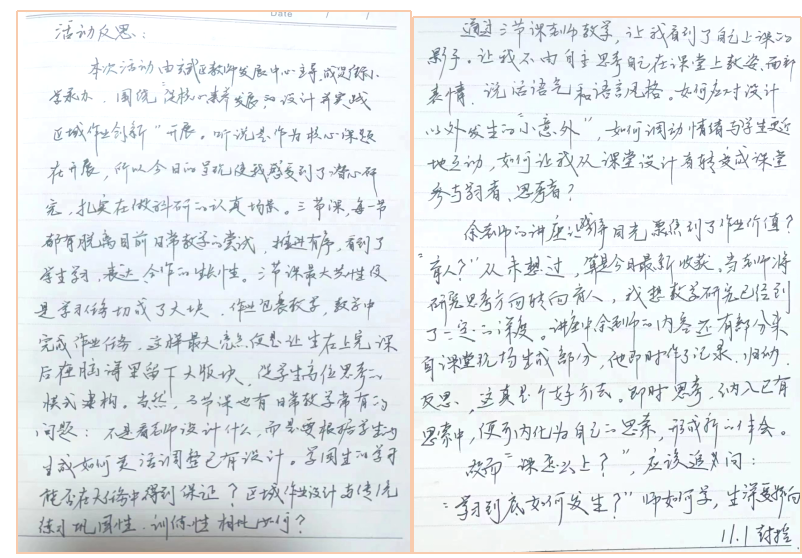 Date
活动反思：
本次活动由玄武区教师发展中心主导，成贤街小
学承办，围绕“设核心素养发展的设计并实践
区域作业创新”开展。听说是作为核心课题
在开展，所以今日的呈现使我感受到了潜心研
究，扎实在做科研的认真场景。三节课，每一节
都有脱离目前日常教学的尝试，推进有序，看到了
学生学习、表达、合作的生长性。三节课最大共性便
是学习任务切成了大块，作业包裹教学，教学中
完成作业任务，这样最大亮点便是让生在上完课
后在脑海里留下大版块，促学生高位思考的
模式建构。当然，三节课也有日常教学常有的
问题：不是看老师设计什么，而是要根据学生的
生成如何灵活调整已有设计。学困生的学习
能否在大任务中得到保证？区域作业设计与传统
练习巩固性、训练性相比如何？
通过三节课老师教学，让我看到了自己上课的
影子。让我不由自主思考自己在课堂上教姿、面部
表情、说话语气和语言风格。如何应对设计
以外发生的“小意外”，如何调动情绪与学生更近
地互动，如何让我从课堂设计者转变成课堂
参与者、思考者？
余老师的讲座将目光聚焦到了作业价值？
“育人？”从未想过，算是今日最新收获。当老师将
研究思考方向转向育人，我想教学研究已经到
了一定的深度。讲座中余老师的内容还有部分来
自课堂现场生成部分，他即时作了记录、归纳
反思，这真是个好方法。即时思考，纳入已有
思索中，便可内化为自己的思索，形成新的体会。
故而“课怎么上？”，应该追问：
“学习到底如何发生？”师如何学，生深度指向
11.1